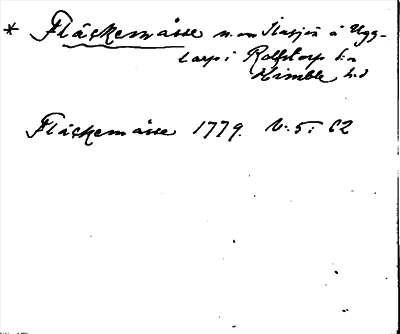 * Fläskemåsse n.om Stasjön å Ugg-
larp i Rolfstorp s:n
Himble h:d
Fläskemåsse 1779. V: 5: 62